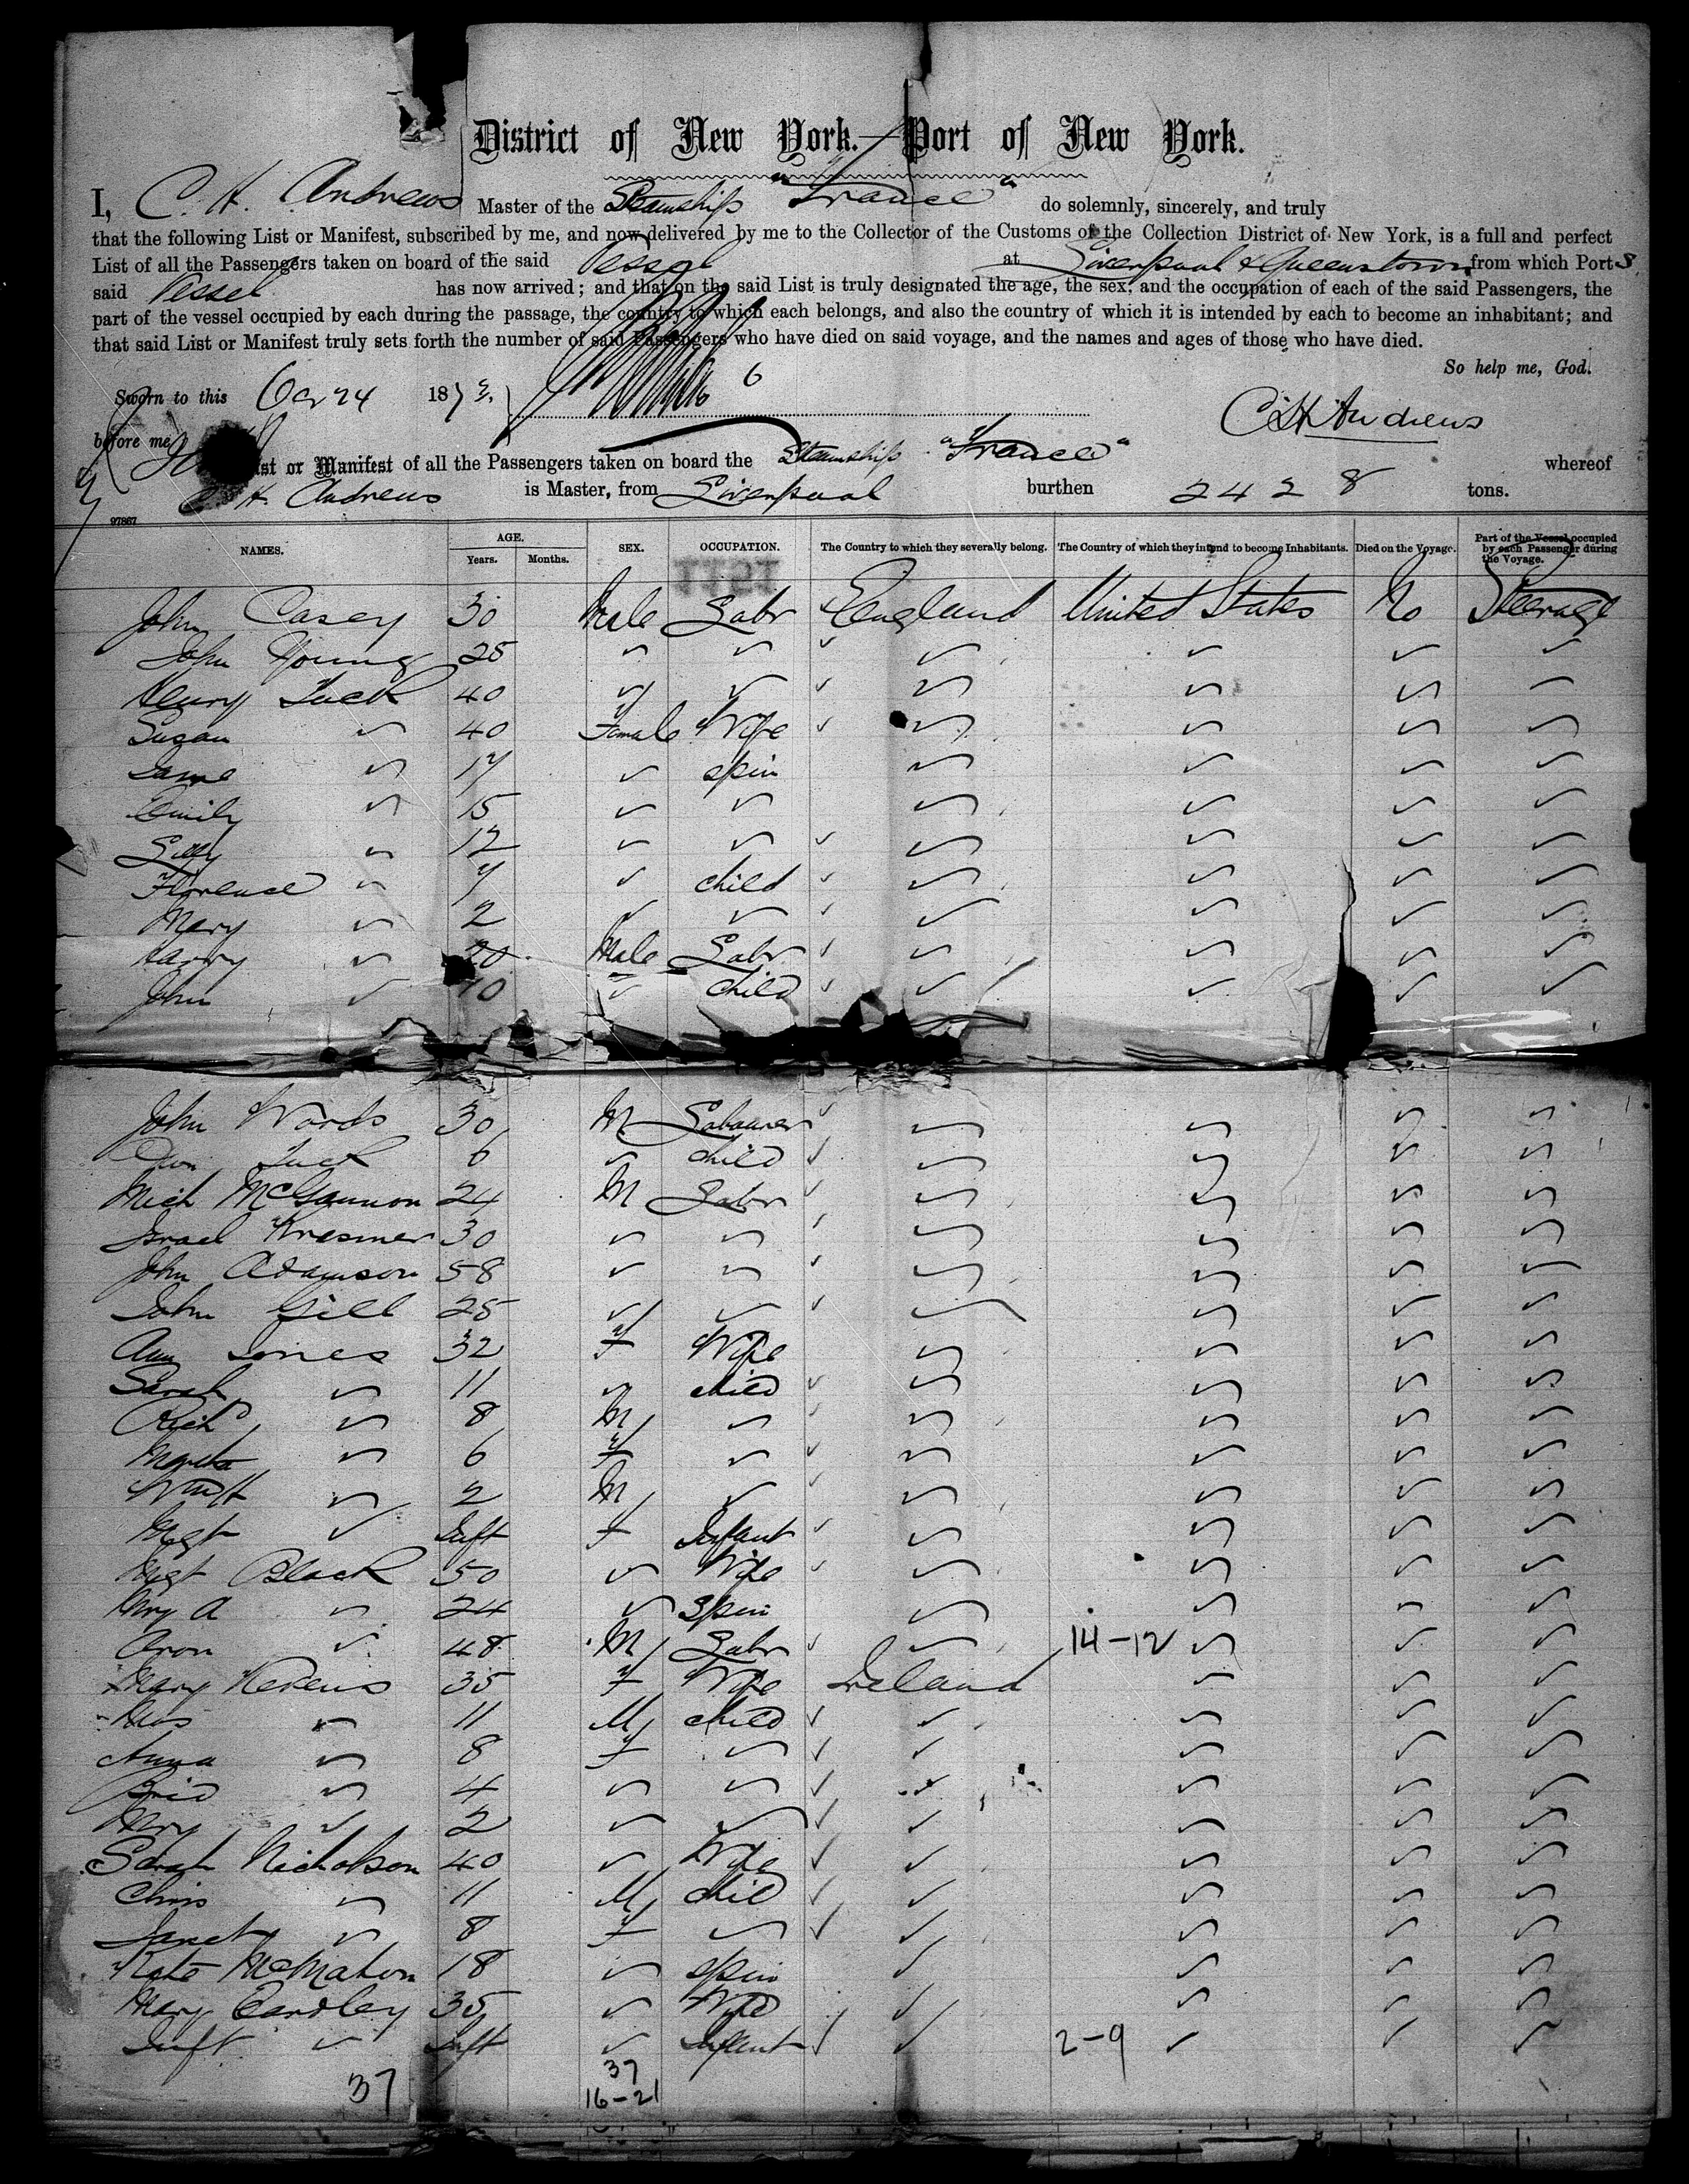 District of New York.—Port of New York.
I, C. H. Andrews Master of the Steamship "France" do solemnly, sincerely, and truly
that the following List or Manifest, subscribed by me, and now delivered by me to the Collector of the Customs of the Collection District of New York, is a full and perfect
List of all the Passengers taken on board of the said Vessel at Liverpool & Queenstown from which Port s
said Vessel has now arrived; and that on the said List is truly designated the age, the sex, and the occupation of each of the said Passengers, the
part of the vessel occupied by each during the passage, the country to which each belongs, and also the country of which it is intended by each to become an inhabitant; and
that said List or Manifest truly sets forth the number of said Passengers who have died on said voyage, and the names and ages of those who have died.
So help me, God.
Sworn to this 24 187 6
C H Andrews
before me
List or Manifest of all the Passengers taken on board the Steamship "France" whereof
C H. Andrews is Master, from Liverpool burthen 2428 tons.
97867
NAMES. AGE. Years. Months. SEX. OCCUPATION. The Country to which they severally belong. The Country of which they intend to become Inhabitants. Died on the Voyage. Part of the Vessel occupied by each Passenger during the Voyage.
John Casey 30 Male Labr England United States No Steerage
John Young 25
Henry Tuck 40
Susan 40 Female Wife
Jame 17 spin
Emily 15
Lilly 12
Florence 7 child
Mary 2
Harry 20 Male Labr
John 10 child
John Woods 30 M Labourer
Tuck 6 child
Mich McGannon 24 M Labr
Israel Kresmer 30
John Adamson 58
John Gill 25
Ann Jones 32 F Wife
Sarah 11 child
Richd 8 M
6 F
2 M
Mgt Inft F Infant
Mgt Black 50 Wife
Mry A 24 Spin
Aron 48 M Labr 14-12
Mary 35 F Wife Ireland
11 M child
Anna 8 F
Brid 4
Mary 2
Sarah Nicholson 40 Wife
Chris 11 M child
Janet 8 F
Kate McMahon 18 spin
Mary Eardley 35 Wife
Inft Inft Infant 2-9
37 37
16-21